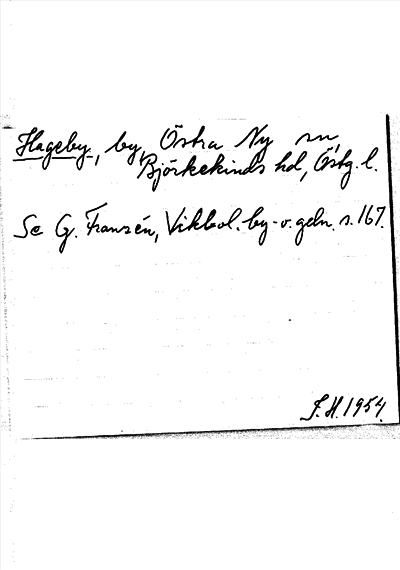 Hageby, by, Östra Ny sn,
Björkekinds hd, Östg. l.
Se G. Franzén, Vikbol. by- o. gdn. s. 167.
F.H. 1954.